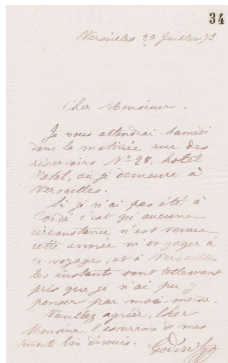 34
Versailles 23 Juillet 73
Cher Monsieur,
Je vous attendrai samedi
dans la matinée rue des
réservoirs N° 28, hotel
Vatel, où je demeure à
Versailles.
Si je n'ai pas été à
c'est qu'aucune
circonstance n'est venue
cette année m'engager à
ce voyage, et à Versailles
les instants sont tellement
pris que je n'ai pu y
penser par moi même.
Veuillez agréer, cher
Monsieur, l'assurance de mes
Godin